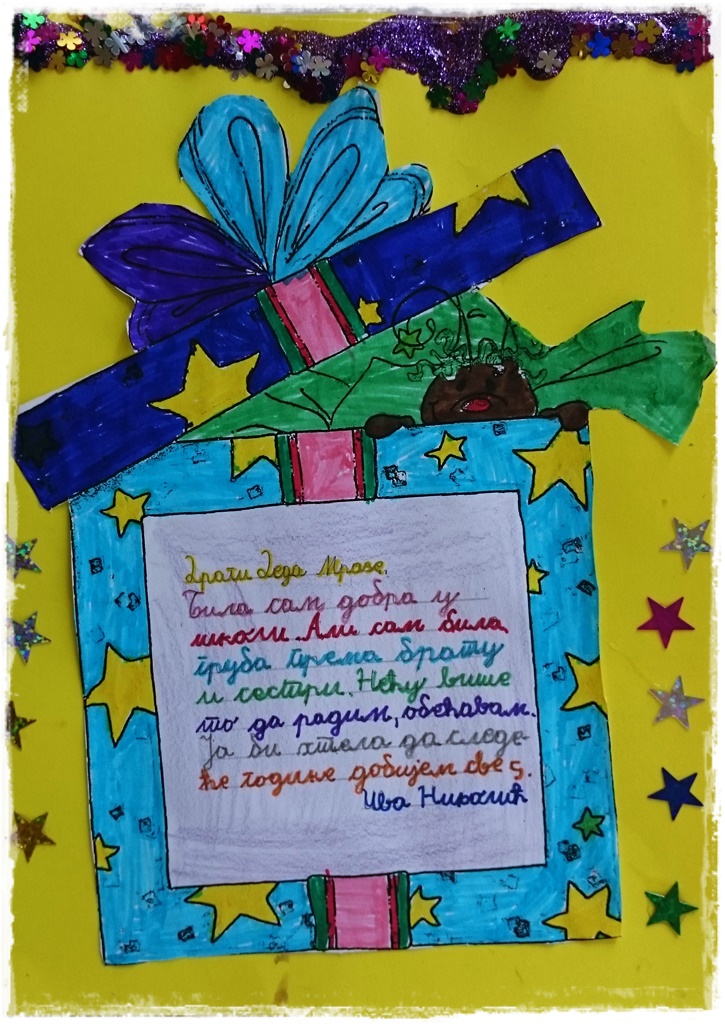 Драги Деда Мразе,
Била сам добра у
школи. Али сам била
груба према брату
и сестри. Нећу више
то да радим, обећавам.
Ја би хтела да следе-
ће године добијем све 5.
Ива Николић